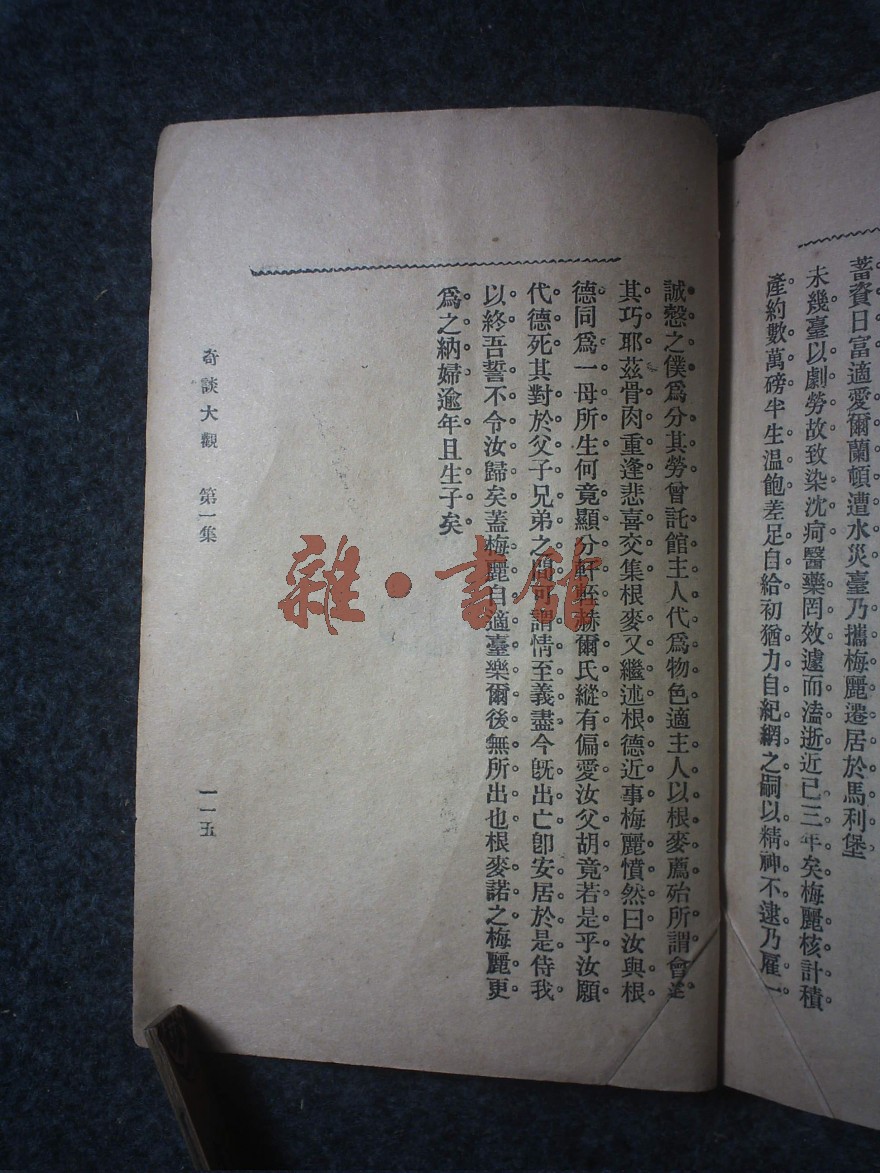 蓄資日富適愛爾蘭頓遭水災臺乃攜梅麗遷居於馬利堡
未幾臺以劇勞故致染沈疴醫藥罔效遽而溘逝近已三年矣梅麗核計積
產約數萬磅半生温飽差足自給初猶力自紀綱之嗣以精神不逮乃雇一
誠慤之僕爲分其勞曾託館主人代爲物色適主人以根麥薦殆所謂會逢
其巧耶茲骨肉重逢悲喜交集根麥又繼述根德近事梅麗憤然曰汝與根
德同爲一母所生何竟顯分軒輊赫爾氏縱有偏愛汝父胡竟若是乎汝願
代德死其對於父子兄弟之間可謂情至義盡今旣出亡卽安居於是侍我
以終吾誓不令汝歸矣蓋梅麗自適臺樂爾後無所出也根麥諾之梅麗更
爲之納婦逾年且生子矣
奇談大觀 第一集
一一五
雜·書館